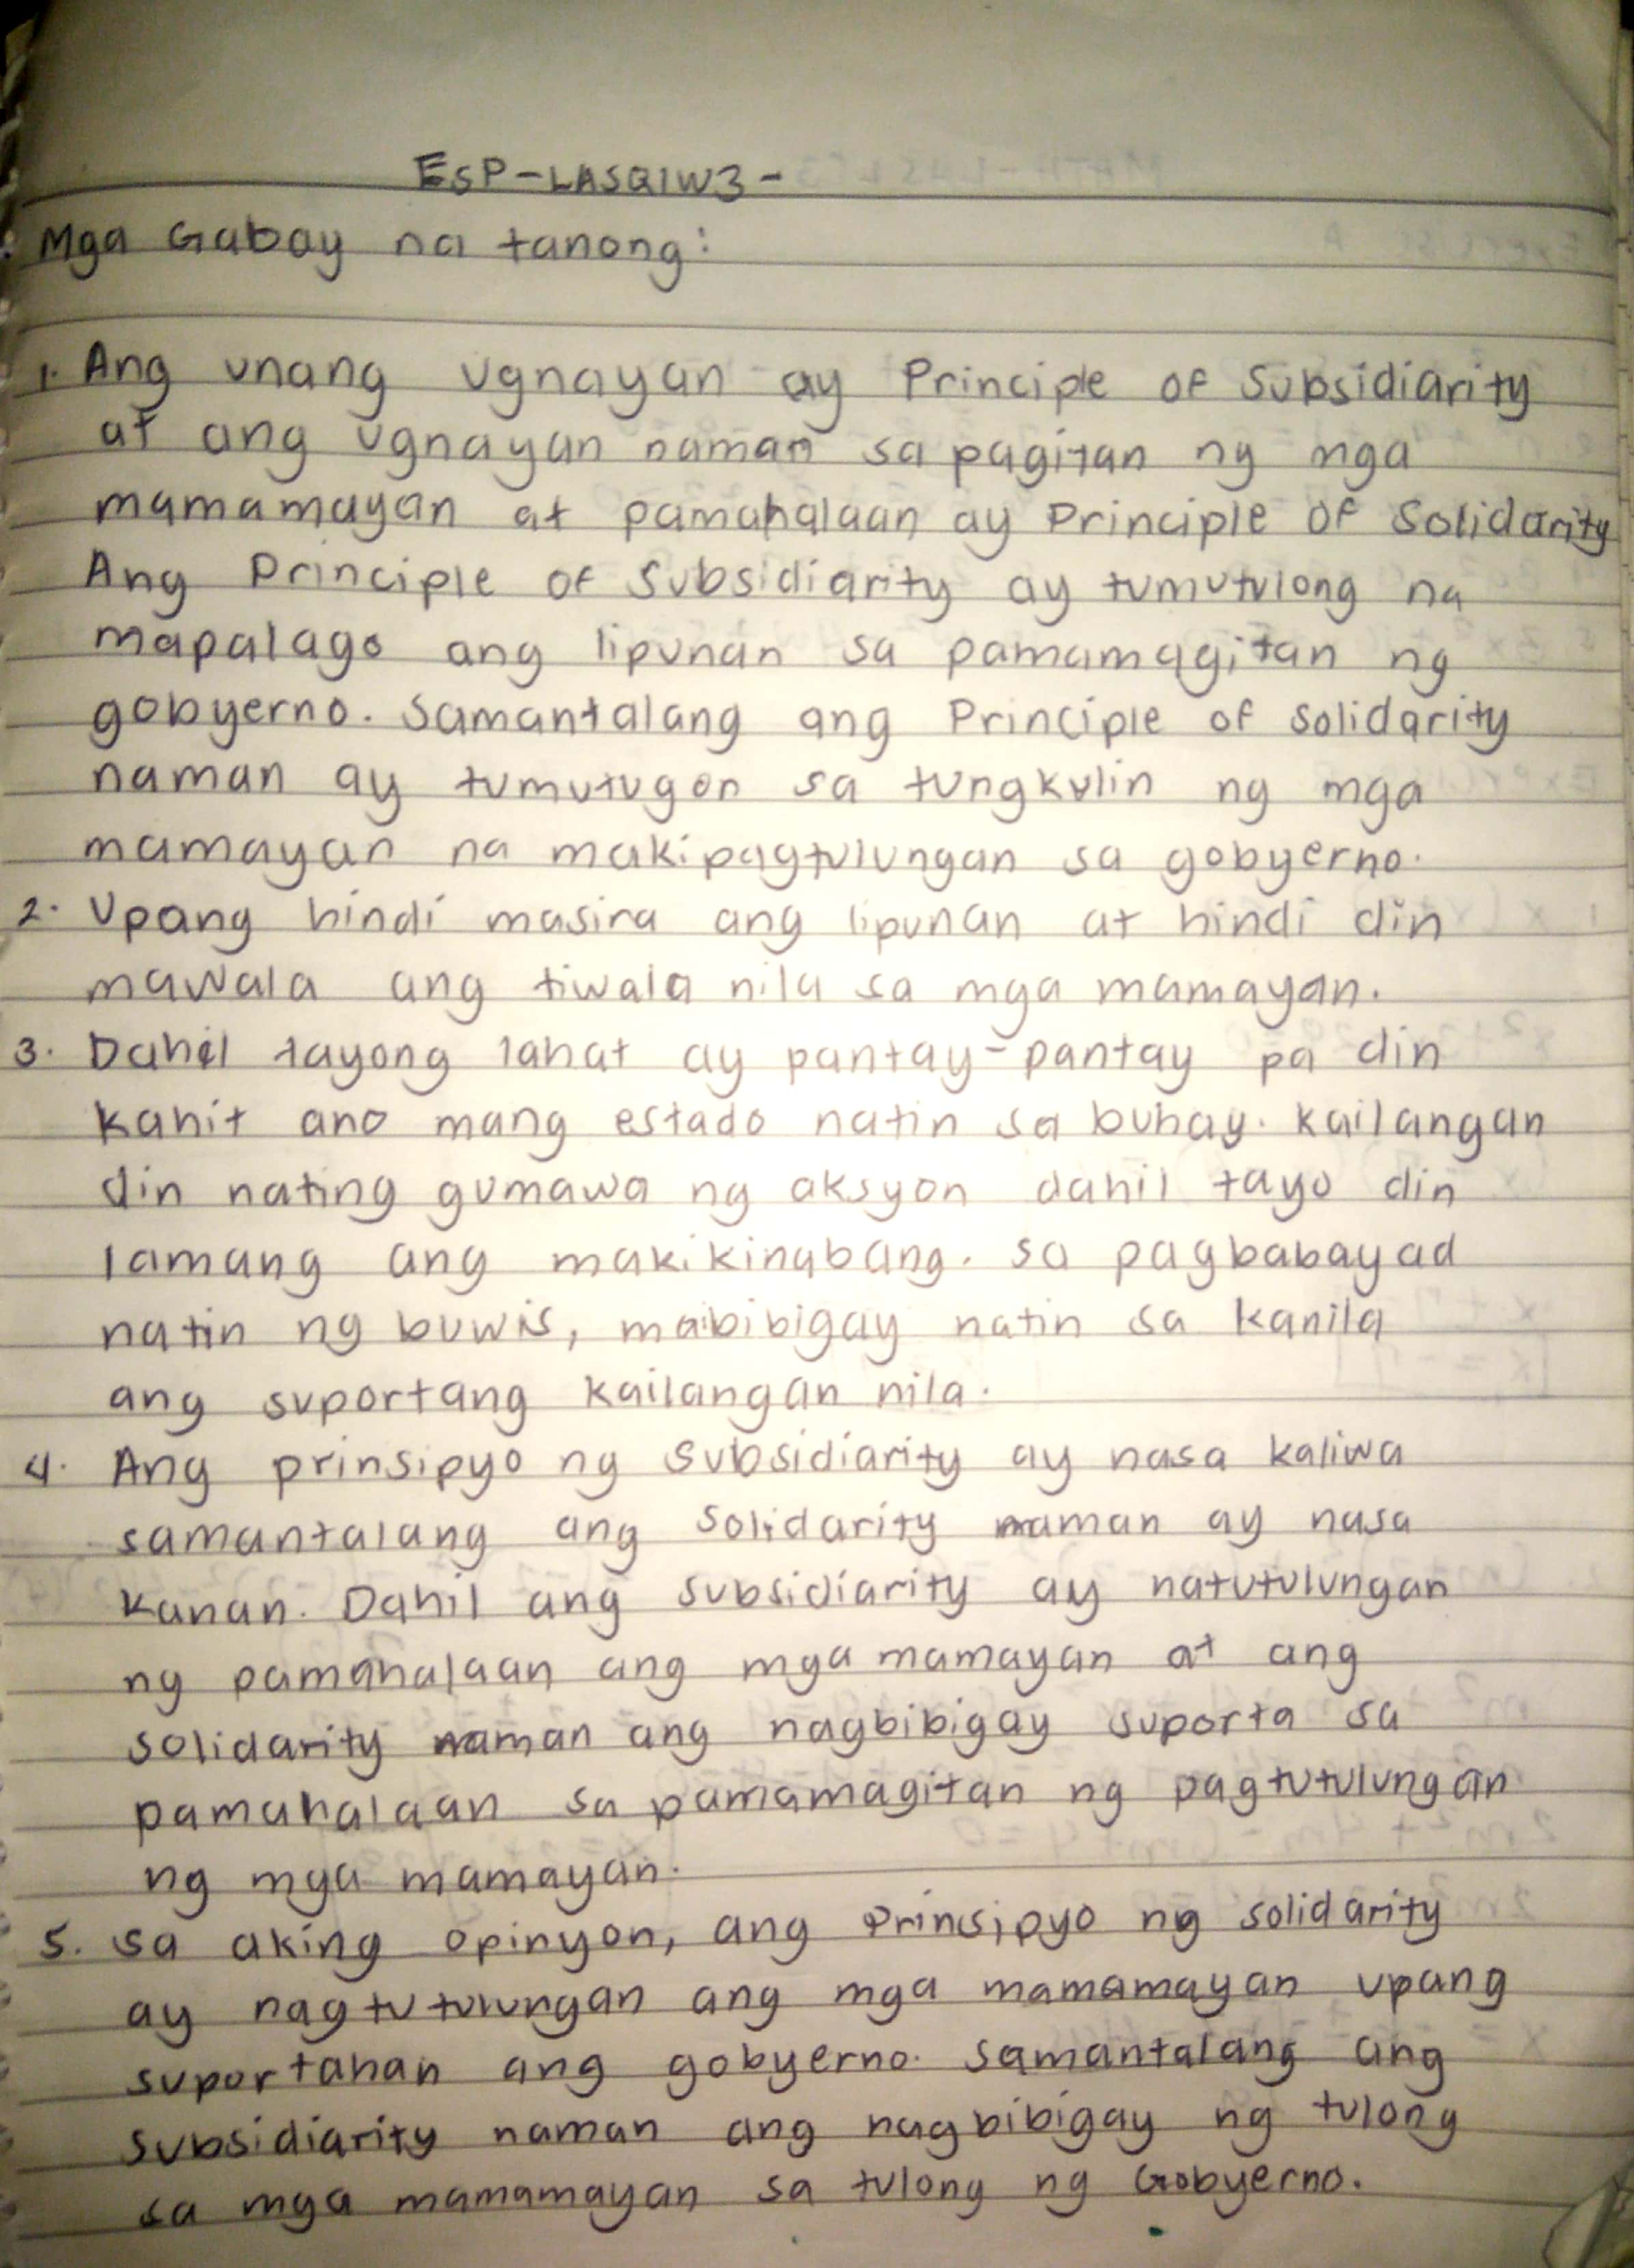 EsP-LASQ1W3-
Mga Gabay na tanong:
1. Ang unang ugnayan ay Principle of Subsidiarity
at ang ugnayan naman sa pagitan ng mga
mamamayan at pamahalaan ay Principle of Solidarity
Ang Principle of Subsidiarity ay tumutulong na
mapalago ang lipunan sa pamamagitan ng
gobyerno. Samantalang ang Principle of Solidarity
naman ay tumutugon sa tungkulin ng mga
mamayan na makipagtulungan sa gobyerno.
2. Upang hindi masira ang lipunan at hindi din
mawala ang tiwala nila sa mga mamayan.
3. Dahil tayong lahat ay pantay-pantay pa din
kahit ano mang estado natin sa buhay. Kailangan
din nating gumawa ng aksyon dahil tayo din
lamang ang makikinabang. Sa pagbabayad
natin ng buwis, maibibigay natin sa kanila
ang suportang kailangan nila.
4. Ang prinsipyo ng Subsidiarity ay nasa kaliwa
samantalang ang Solidarity naman ay nasa
kanan. Dahil ang subsidiarity ay natutulungan
ng pamahalaan ang mga mamayan at ang
solidarity naman ang nagbibigay suporta sa
pamahalaan sa pamamagitan ng pagtutulungan
ng mga mamayan.
5. Sa aking opinyon, ang Prinsipyo ng solidarity
ay nagtutulungan ang mga mamamayan upang
suportahan ang gobyerno. Samantalang ang
subsidiarity naman ang nagbibigay ng tulong
sa mga mamamayan sa tulong ng Gobyerno.